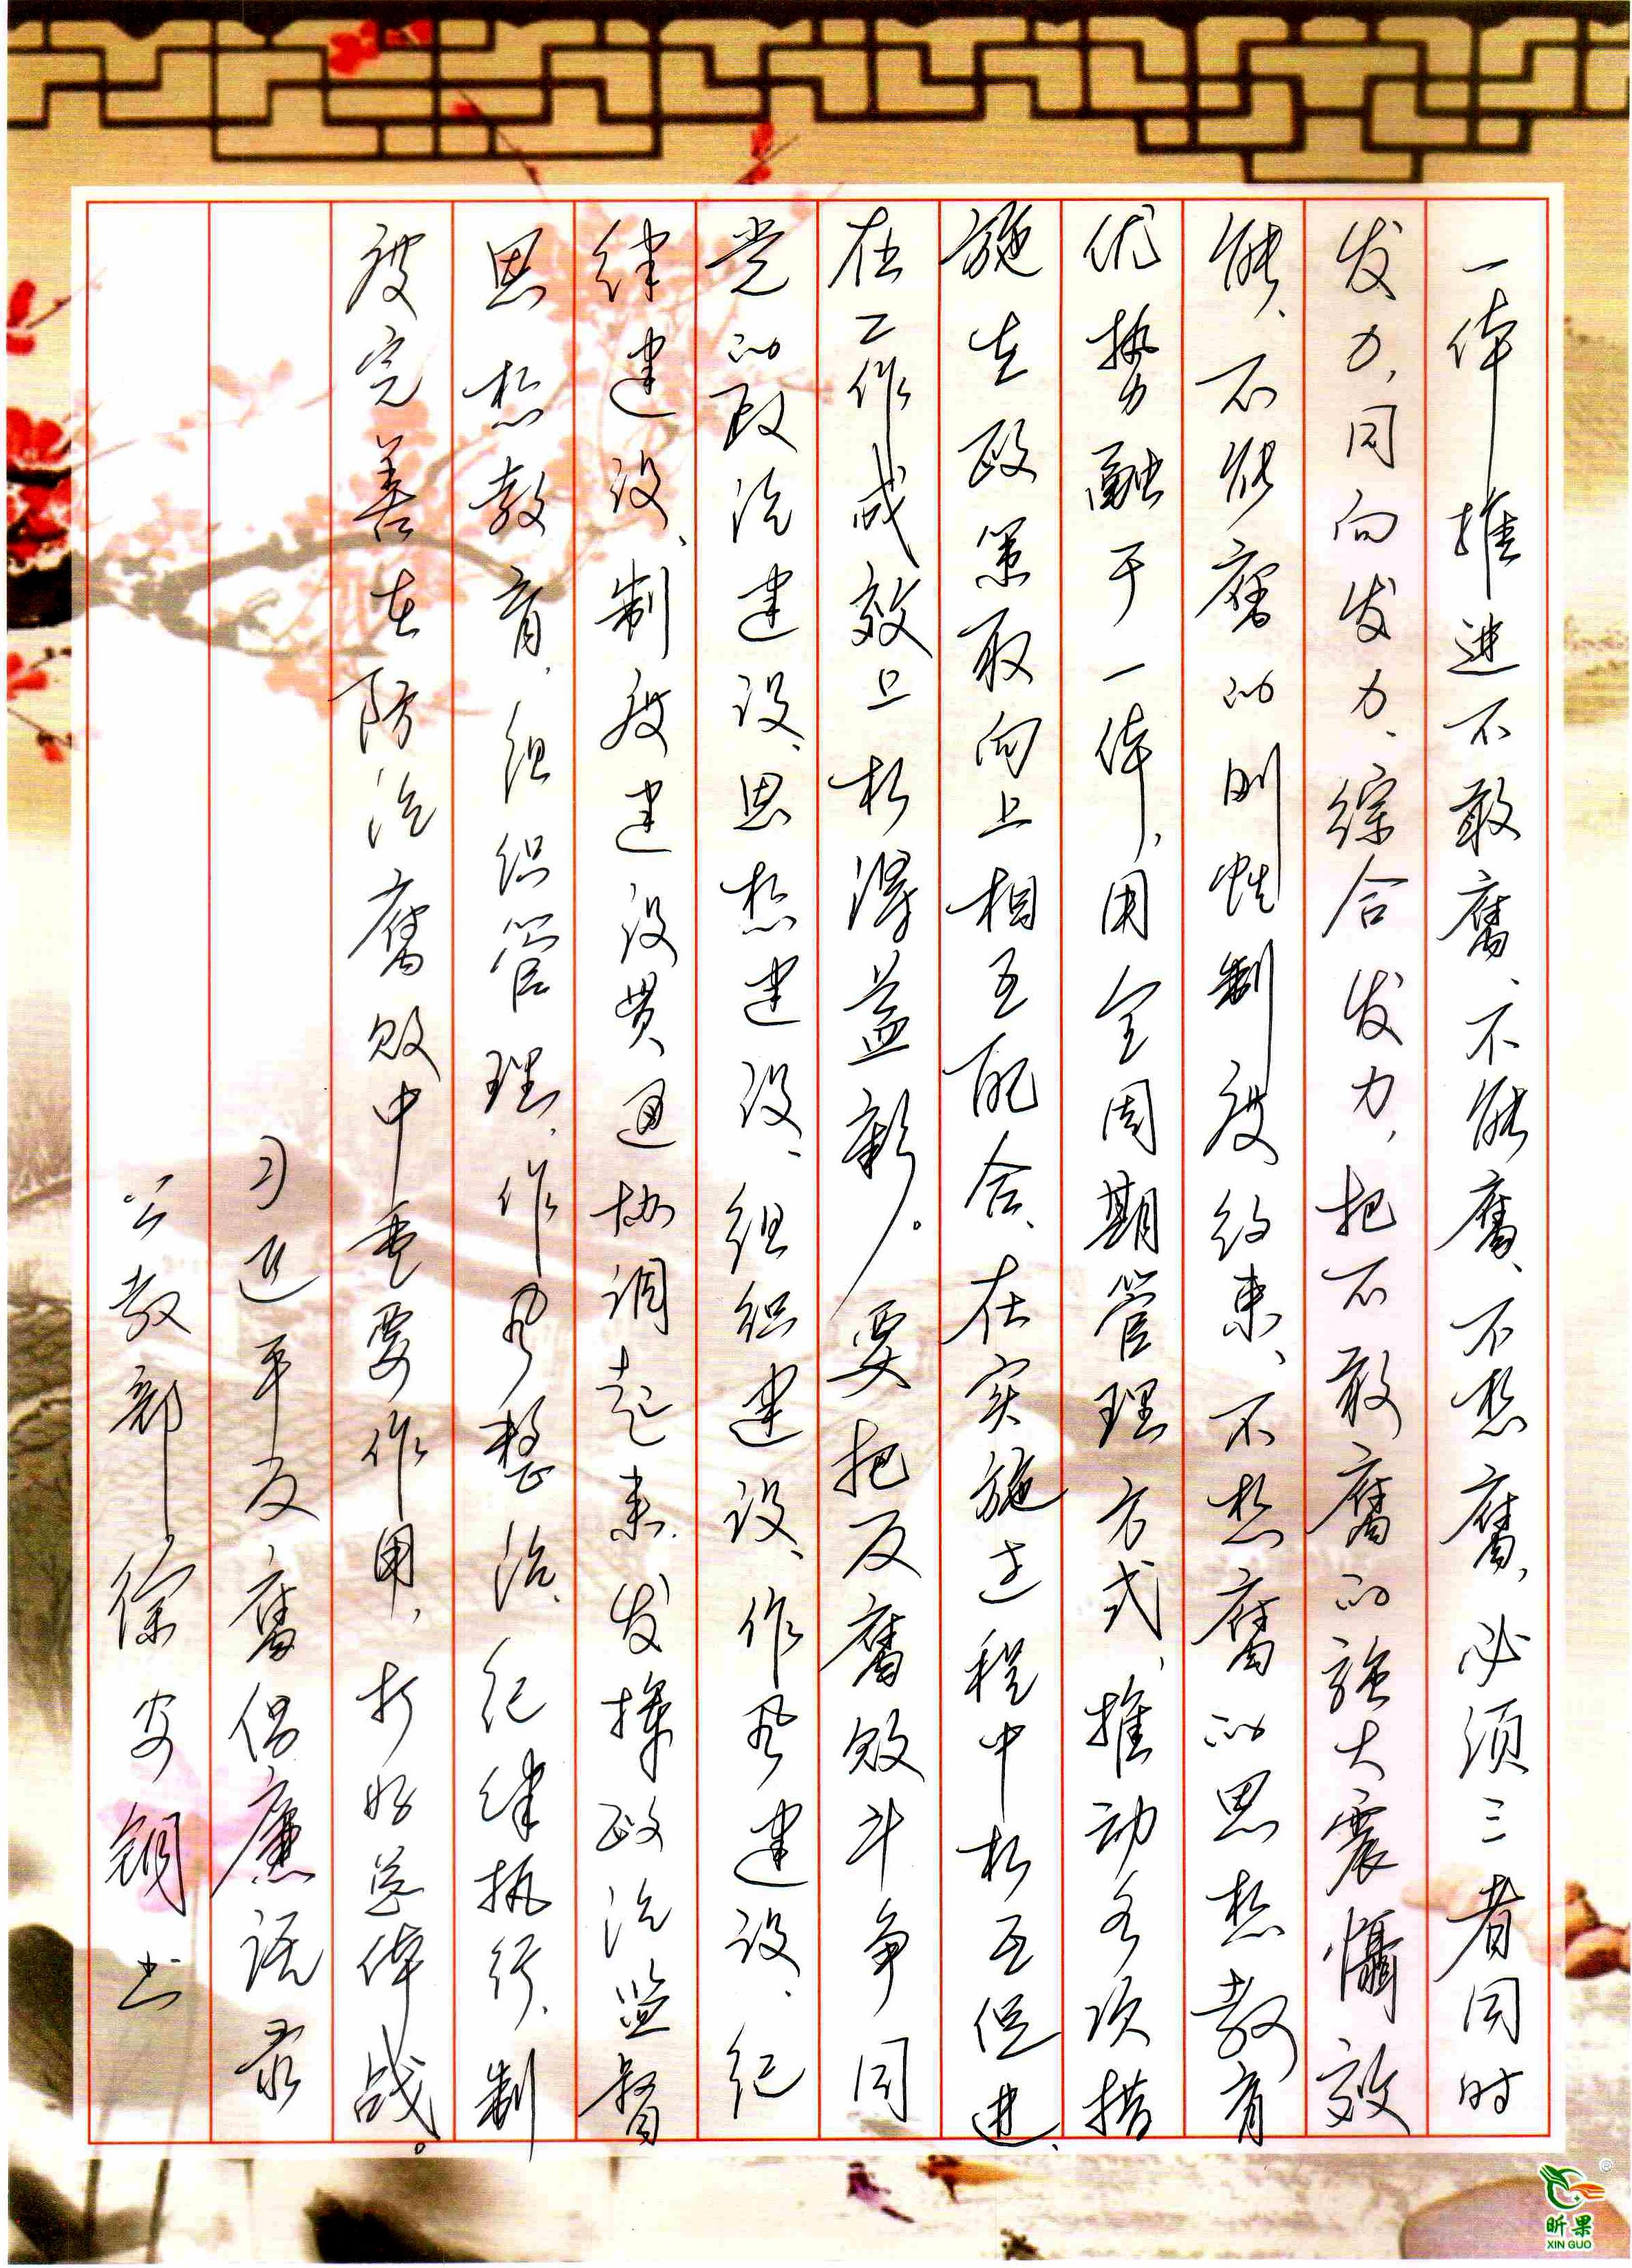 一体推进不敢腐、不能腐、不想腐，必须三者同时
发力，同向发力、综合发力，把不敢腐的强大震慑效
能、不能腐的刚性制度约束、不想腐的思想教育
优势融于一体，用全周期管理方式，推动各项措
施在政策取向上相互配合、在实施过程中相互促进、
在工作成效上相得益彰。要把反腐败斗争同
党的政治建设、思想建设、组织建设、作风建设、纪
律建设、制度建设贯通协调起来，发挥政治监督
思想教育、组织管理、作风整治、纪律执行、制
度完善在防治腐败中重要作用，打好总体战。
习近平反腐倡廉语录
公教部 徐安钢 书
昕果
XIN GUO